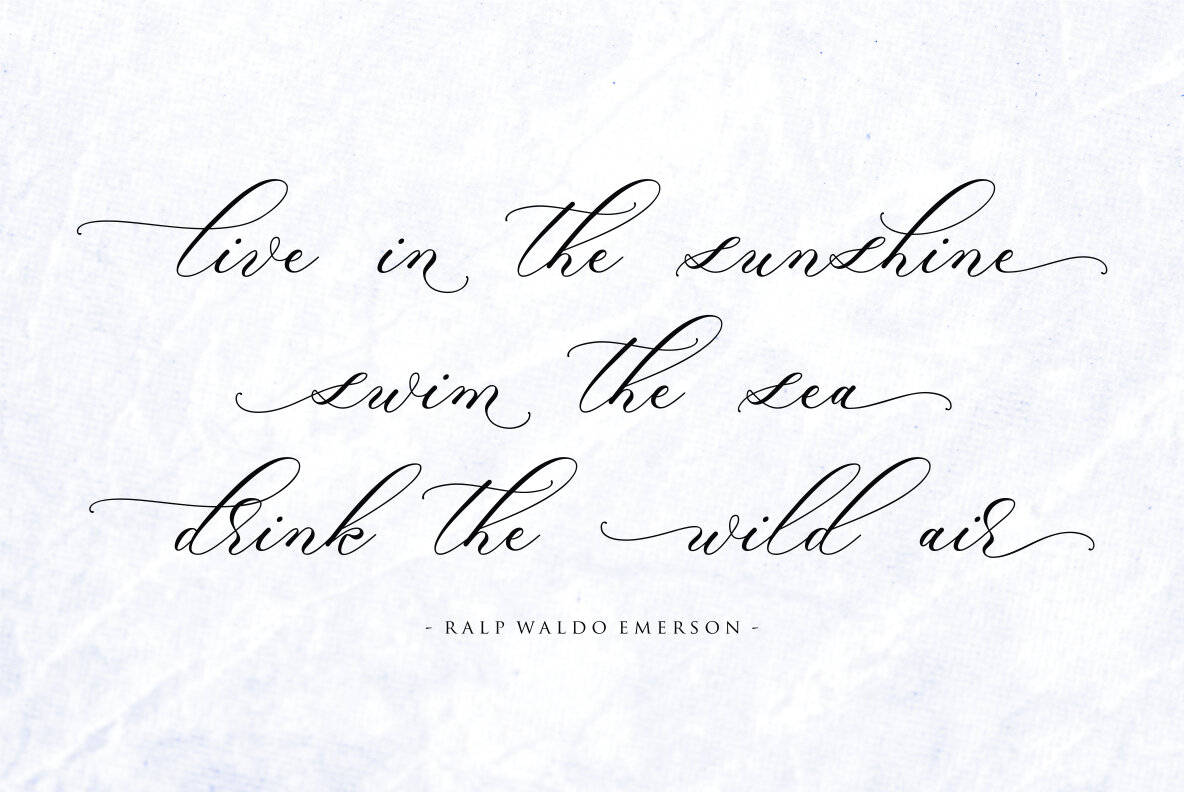 live in the sunshine
swim the sea
drink the wild air
- RALP WALDO EMERSON -